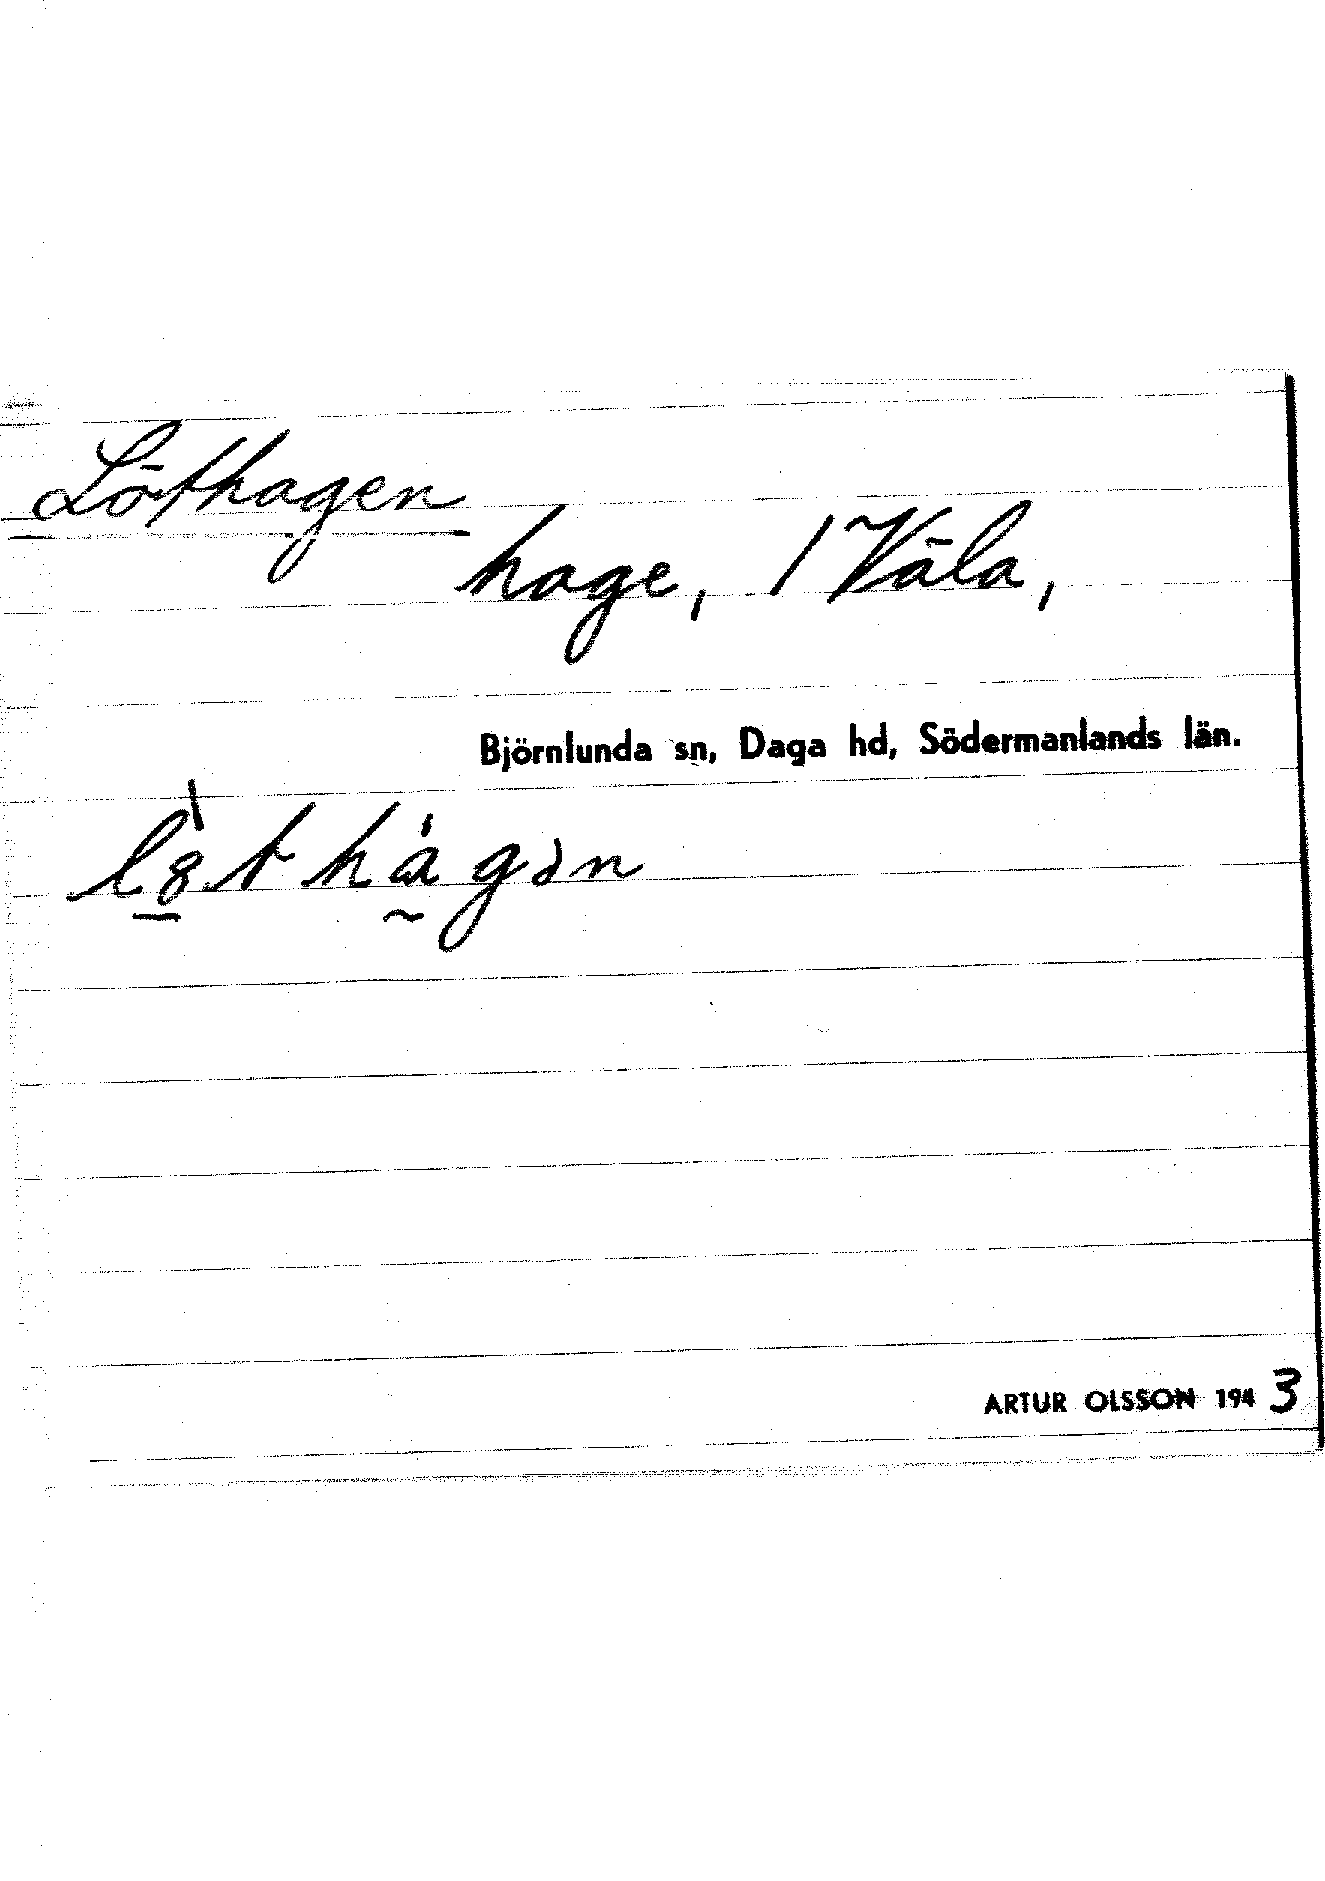 Löthagen
hage, 1 Väla,
Björnlunda sn, Daga hd, Södermanlands län.
ARTUR OLSSON 1943